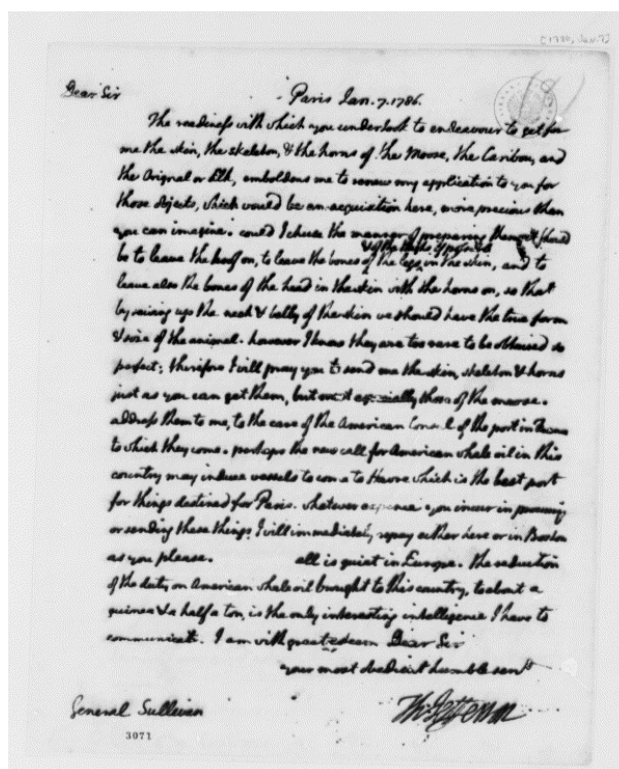 [1786, Jan. 7]
Dear Sir
Paris Jan. 7. 1786.
The readiness with which you undertook to endeavour to get for
me the skin, the skeleton, & the horns of the Moose, the Caribou, and
the Orignal or Elk, emboldens me to renew my application to you for
those objects, which would be an acquisition here, more precious than
you can imagine. could I chuse the manner of preparing them, it should
& of the thighs if possible
be to leave the hoof on, to leave the bones of the legs in the skin, and to
leave also the bones of the head in the skin with the horns on, so that
by sewing up the neck & belly of the skin we should have the true form
& size of the animal. however I know they are too rare to be obtained so
perfect; therefore I will pray you to send me the skin, skeleton & horns
just as you can get them, but most especially those of the moose.
address them to me, to the care of the American Consul of the port in France
to which they come. perhaps the new call for American whale oil in this
country may induce vessels to come to Havre which is the best port
for things destined for Paris. whatever expence you incur in procuring
or sending these things I will immediately repay either here or in Boston
as you please. all is quiet in Europe. the reduction
of the duty on American whale oil brought to this country, to about a
guinea & a half a ton, is the only interesting intelligence I have to
communicate. I am with great esteem Dear Sir
your most obedient humble servt
Th: Jefferson
General Sullivan
3071